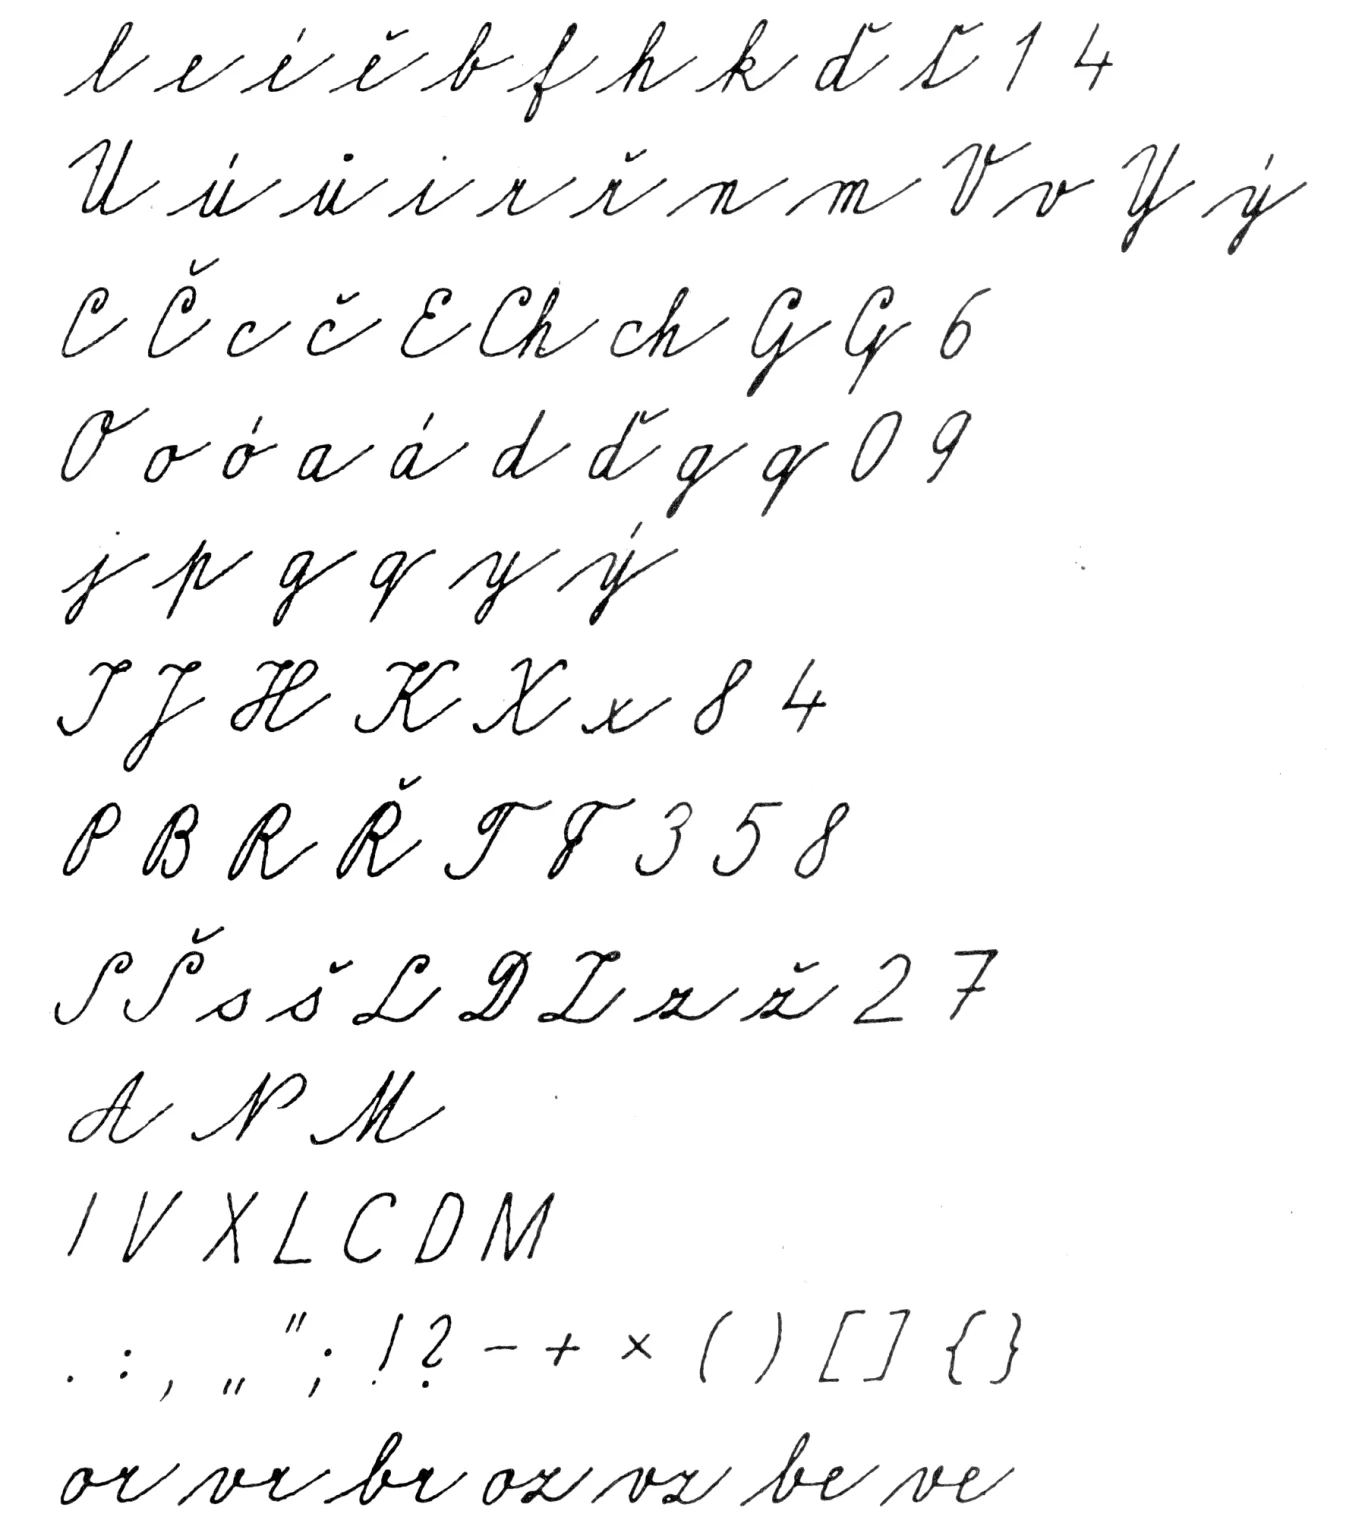 l e é ě b f h k ď ť 1 4
U ú ů i r ř n m V v Y ý
C Č c č E Ch ch G Q 6
O o ó a á d ď g q 0 9
j p g q y ý
I J H K X x 8 4
P B R Ř T F 3 5 8
S Š s š L D Z z ž 2 7
A N M
I V X L C D M
. : , „ " ; ! ? - + × ( ) [ ] { }
or vr br oz vz be ve